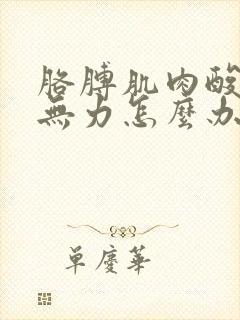 胳膊肌肉酸
無力怎麼办
单慶華